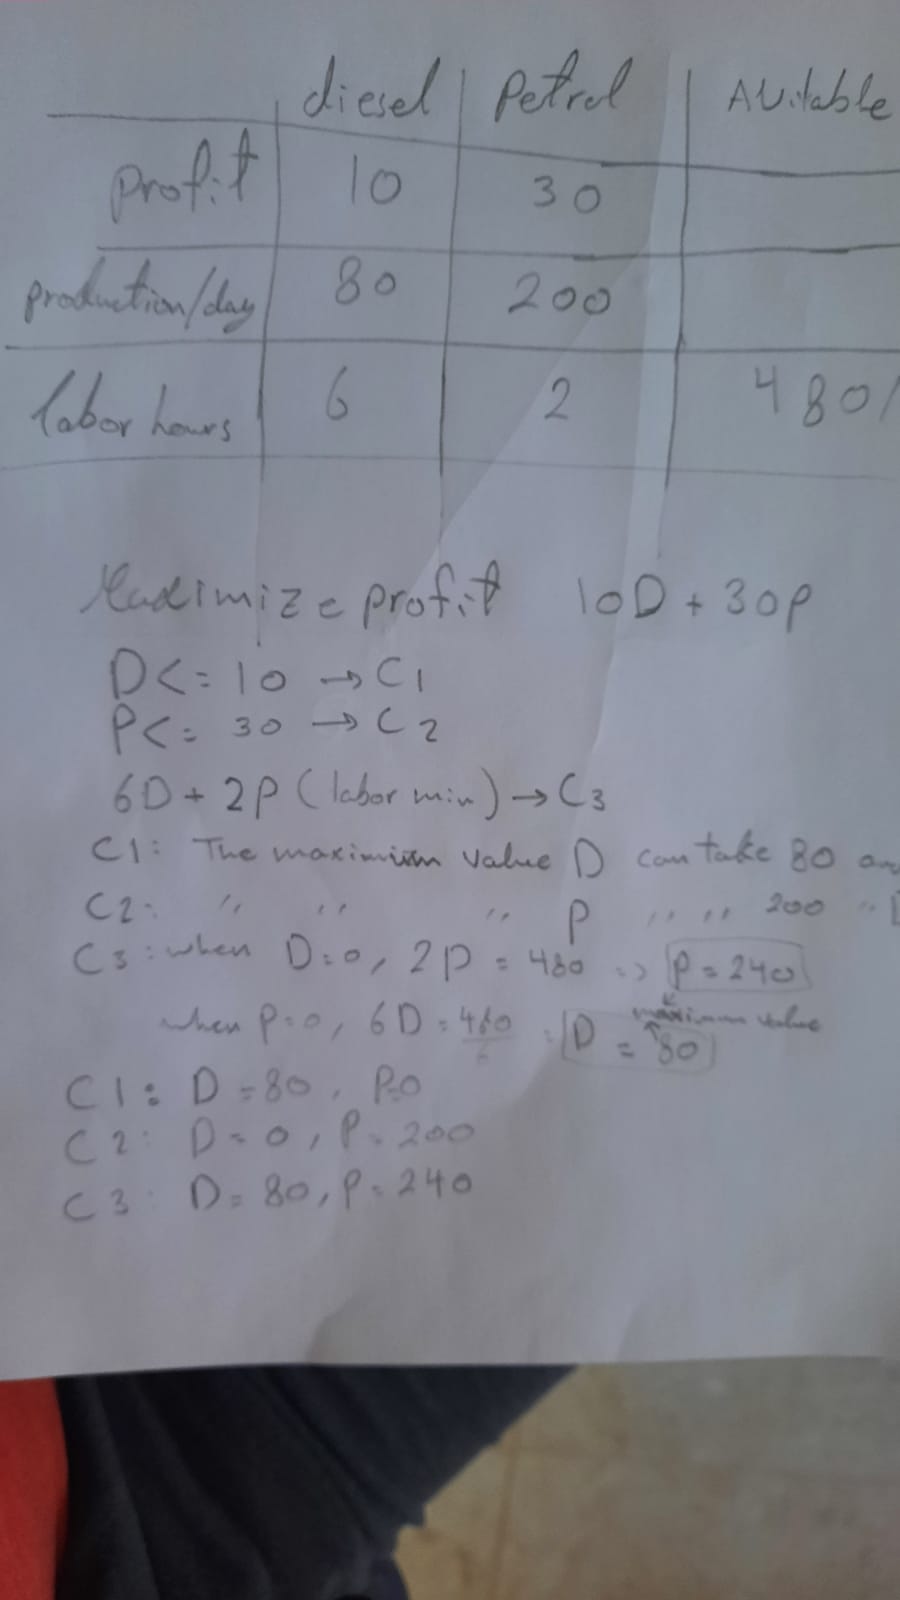 diesel Petrol AVitable
profit 10 30
production/day 80 200
labor hours 6 2 480/
Maximize profit 10D + 30P
D<= 10 → C1
P<= 30 → C2
6D + 2P (labor min) → C3
C1: The maximium value D can take 80
C2: " " " P " " 200 "
C3: when D=0, 2P = 480 => P = 240
maximum value
when P=0, 6D = 480 = D = 80
6
C1: D = 80, P=0
C2: D = 0, P = 200
C3: D = 80, P = 240